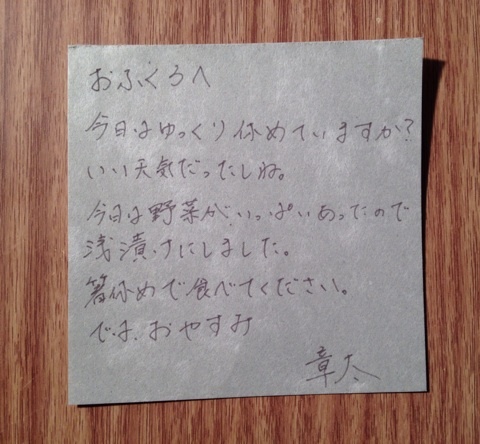 おふくろへ
今日はゆっくり休めていますか?
いい天気だったしね。
今日は野菜がいっぱいあったので
浅漬けにしました。
箸休めで食べてください。
では、おやすみ
章太